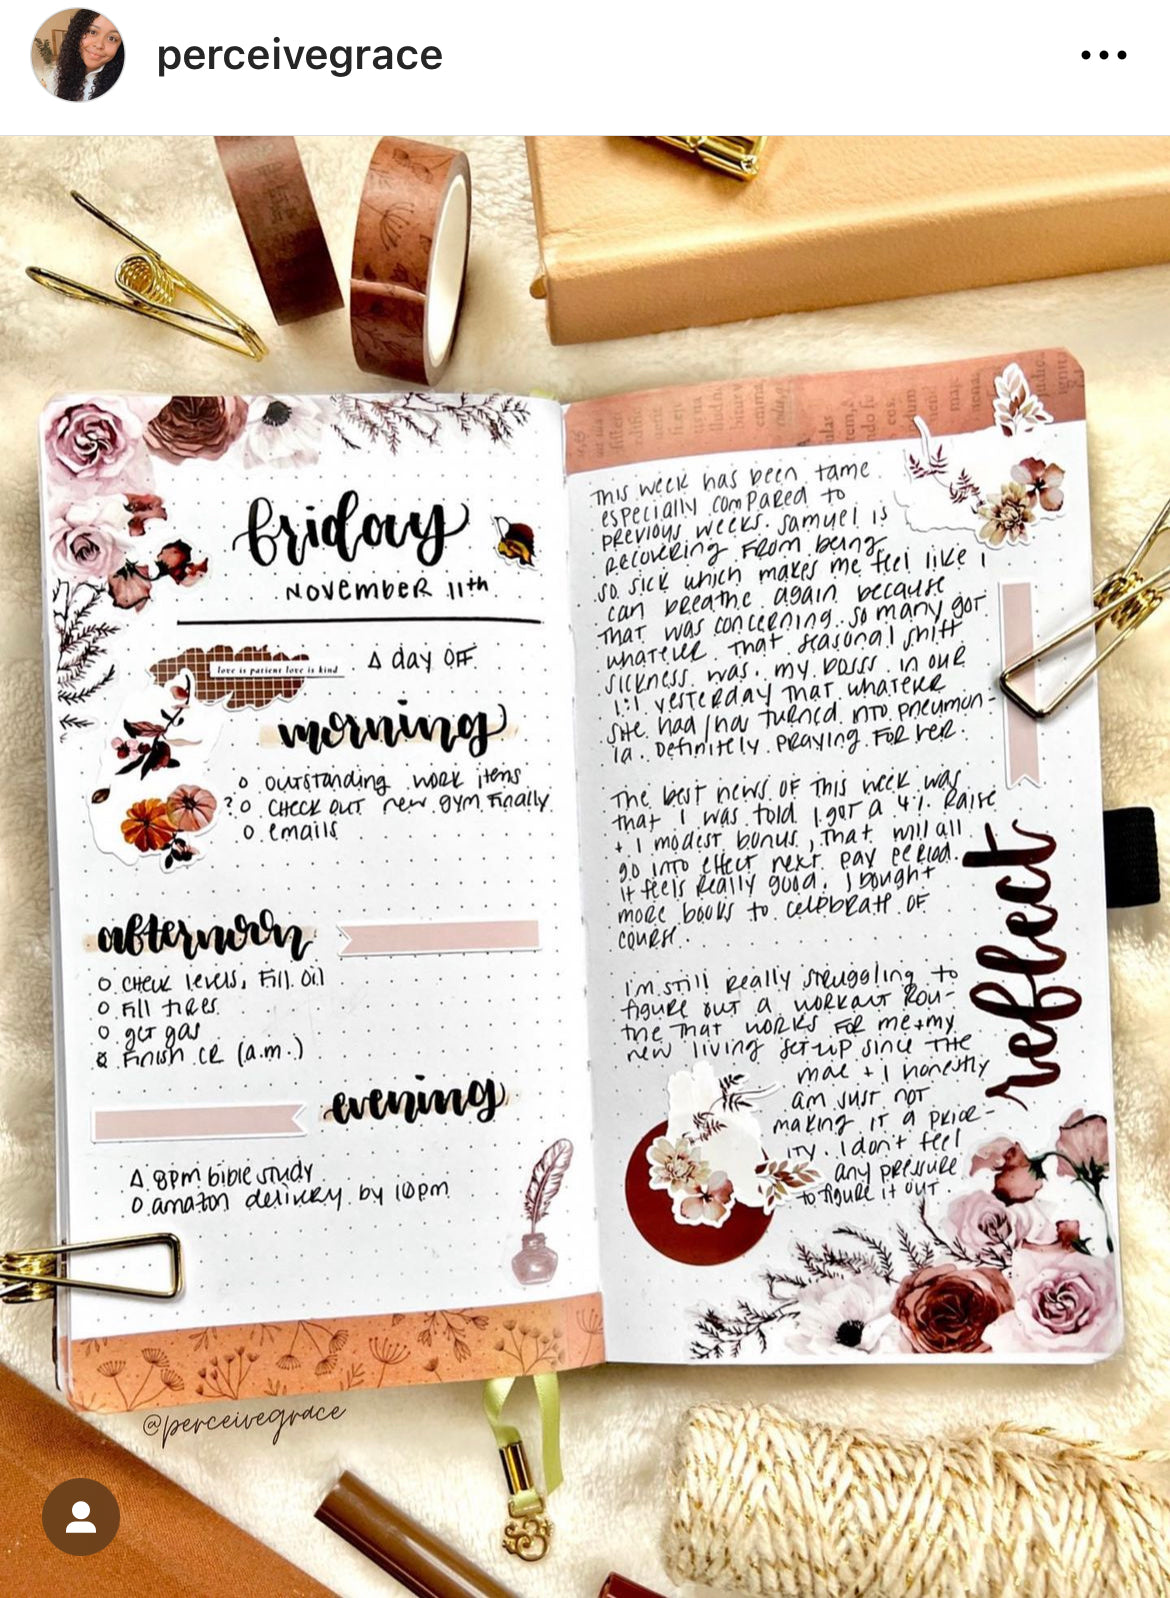 perceivegrace
friday
November 11th
love is patient love is kind
Δ day off
morning
o outstanding work items
? o check out new gym finally
o emails
afternoon
o check levels, fill oil
o fill tires
o get gas
o finish CR (a.m.)
evening
Δ 8pm bible study
o amazon delivery by 10pm
@perceivegrace
This week has been tame
especially compared to
previous weeks. Samuel is
recovering from being
so sick which makes me feel like I
can breathe again because
that was concerning. So many got
whatever that seasonal shift
sickness was. my boss in our
1:1 yesterday that whatever
she had/has turned into pneumon-
ia. Definitely praying for her.
The best news of this week was
that I was told I got a 4% raise
+ 1 modest bonus, that will all
go into effect next pay period.
It feels really good. I bought
more books to celebrate of
course.
i'm still really struggling to
figure out a workout rou-
tine that works for me + my
new living set-up since the
mae + I honestly
am just not
making it a prior-
ity. I don't feel
any pressure
to figure it out.
reflect